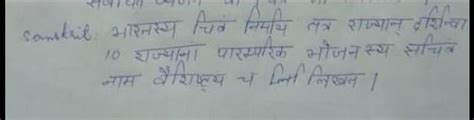 Sanskrit: भारतस्य चित्रं निर्माय तत्र राज्यान् दर्शयित्वा
10 राज्यानां पारम्परिक भोजनस्य सचित्रं
नाम वैशिष्ट्य च लिखत।